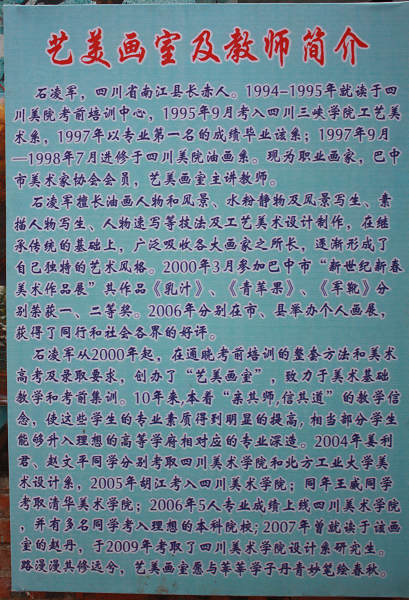 艺美画室及教师简介
石凌军，四川省南江县长赤人。1994-1995年就读于四
川美院考前培训中心，1995年9月考入四川三峡学院工艺美
术系，1997年以专业第一名的成绩毕业该系；1997年9月
—1998年7月进修于四川美院油画系。现为职业画家，巴中
市美术家协会会员，艺美画室主讲教师。
石凌军擅长油画人物和风景、水粉静物及风景写生、素
描人物写生、人物速写等技法及工艺美术设计制作，在继
承传统的基础上，广泛吸收各大画家之所长，逐渐形成了
自已独特的艺术风格。2000年3月参加巴中市“新世纪新春
美术作品展”其作品《乳汁》、《青苹果》、《军靴》分
别荣获一、二等奖。2006年分别在市、县举办个人画展，
获得了同行和社会各界的好评。
石凌军从2000年起，在通晓考前培训的整套方法和美术
高考及录取要求，创办了“艺美画室”，致力于美术基础
教学和考前集训。10年来,本着“亲其师,信其道”的教学信
念，使这些学生的专业素质得到明显的提高,相当部分学生
能够升入理想的高等学府相对应的专业深造。2004年姜利
君、赵文平同学分别考取四川美术学院和北方工业大学美
术设计系，2005年胡江考入四川美术学院；同年王威同学
考取清华美术学院；2006年5人专业成绩上线四川美术学院
，并有多名同学考入理想的本科院校;2007年曾就读于该画
室的赵丹，于2009年考取了四川美术学院设计系研究生。
路漫漫其修远兮，艺美画室愿与莘莘学子丹青妙笔绘春秋。